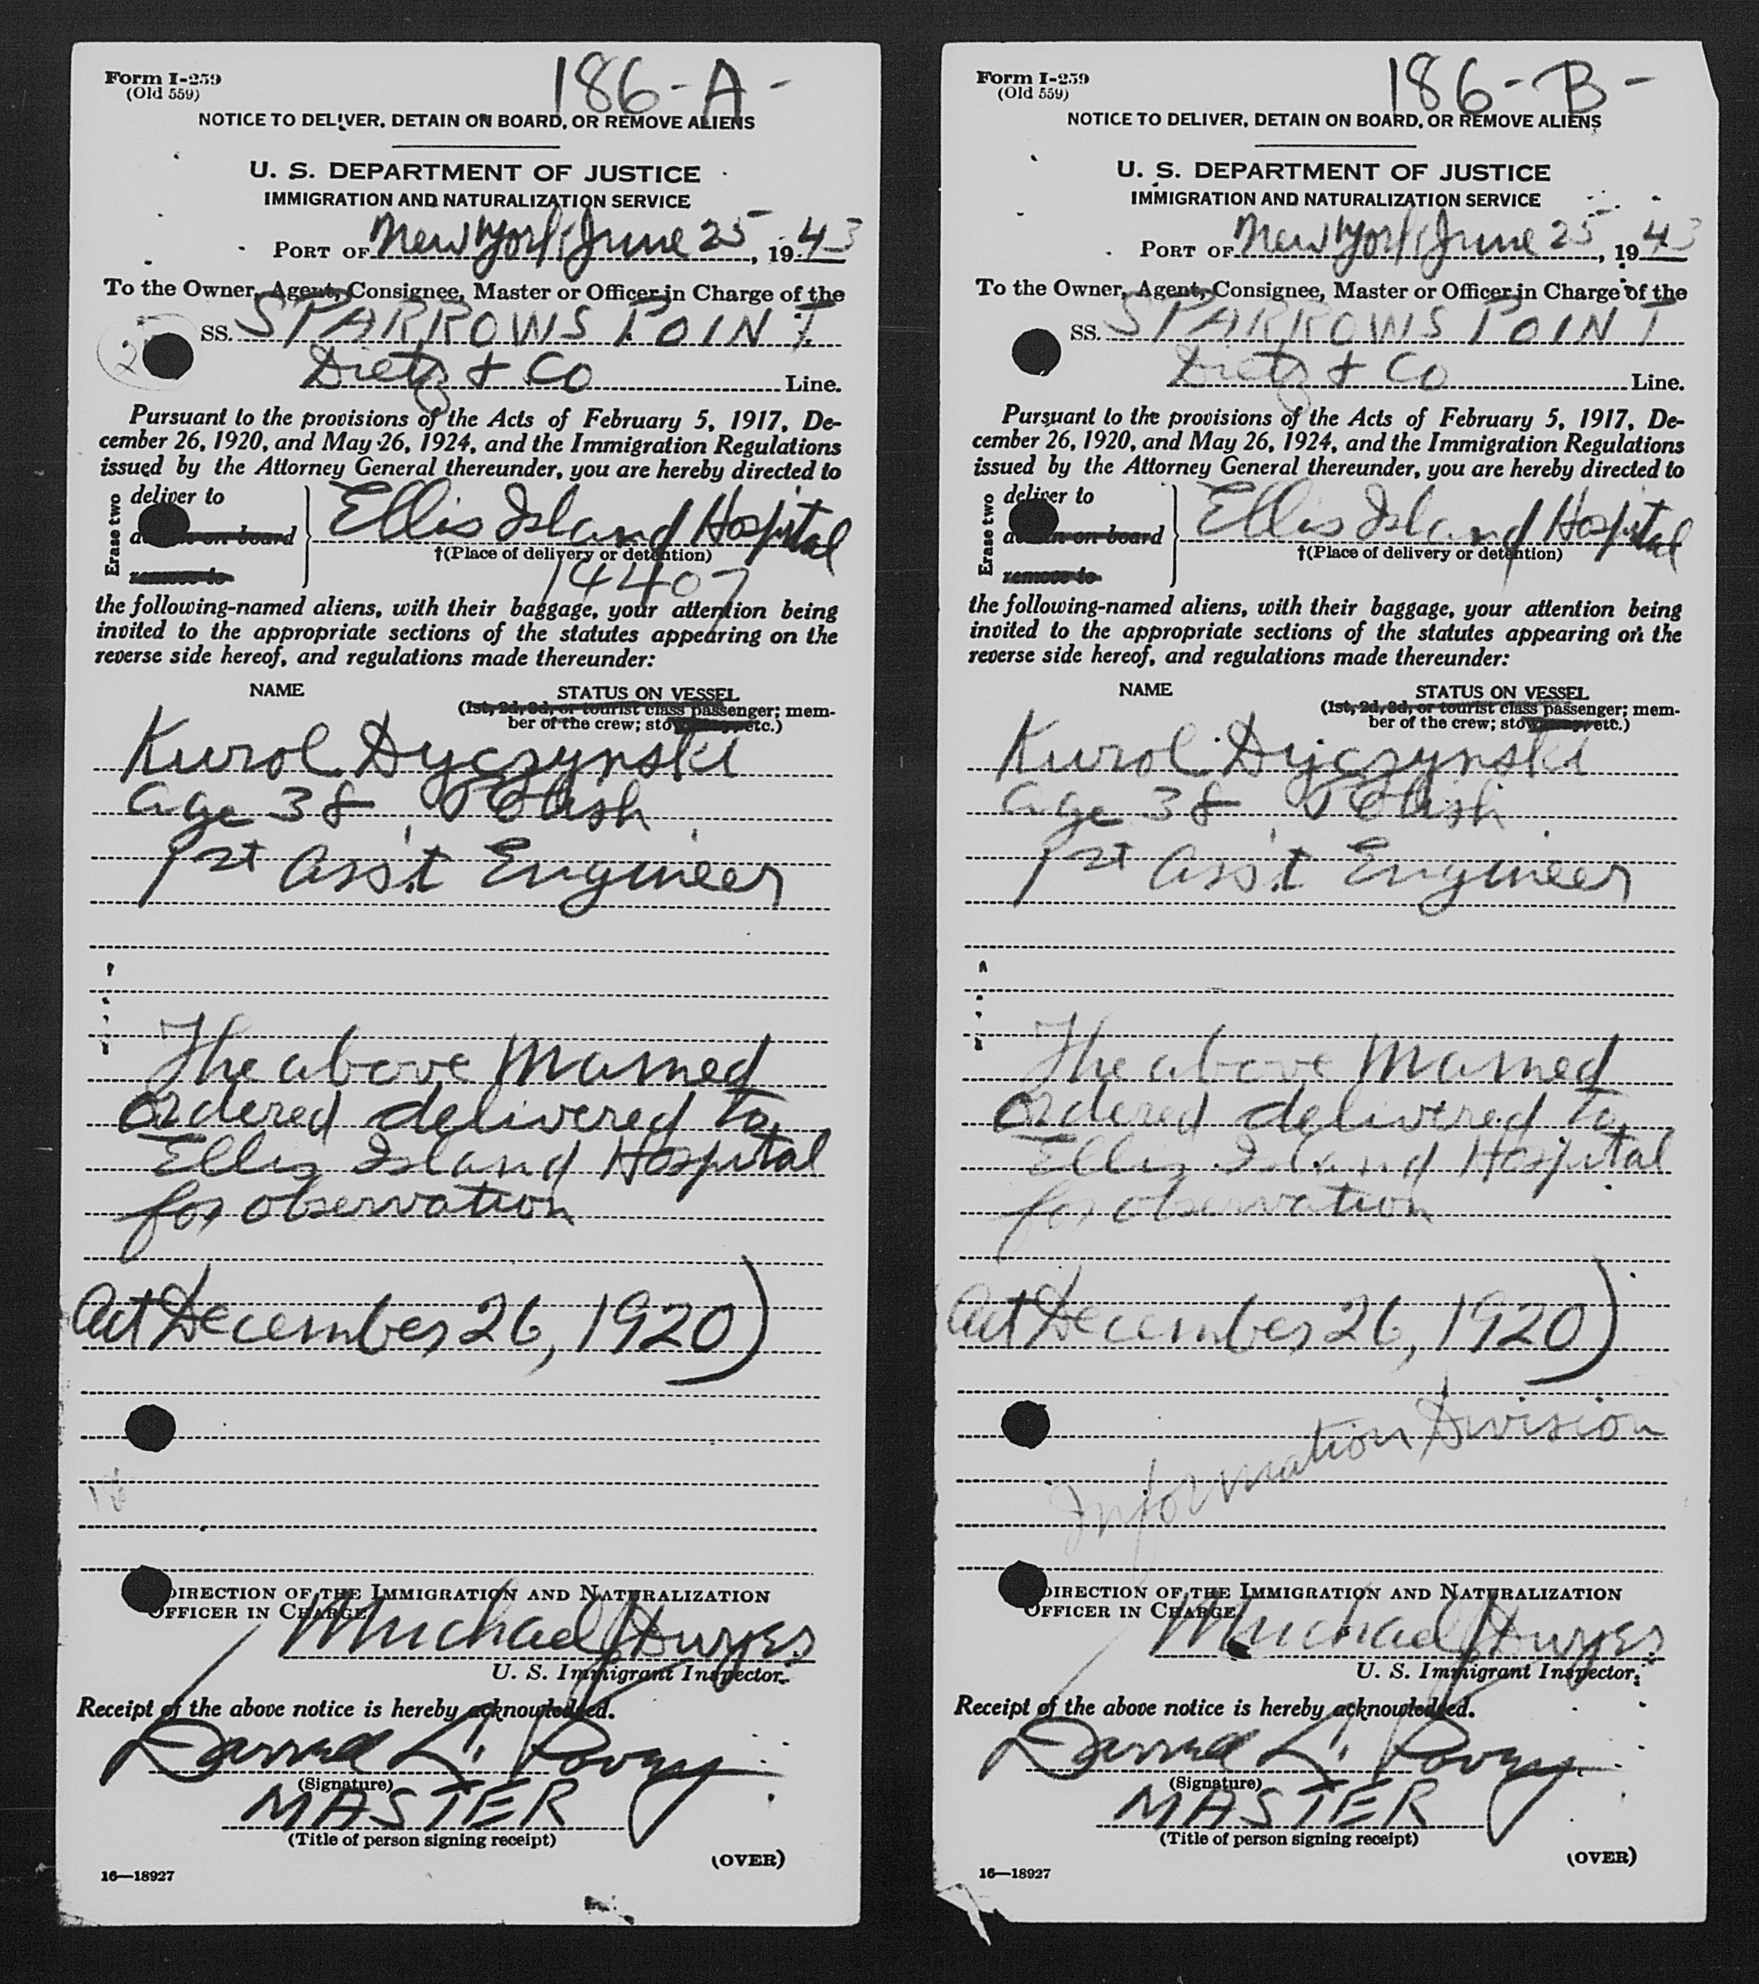 186-A-
Form I-259
(Old 559)
NOTICE TO DELIVER, DETAIN ON BOARD, OR REMOVE ALIENS
U. S. DEPARTMENT OF JUSTICE
IMMIGRATION AND NATURALIZATION SERVICE
PORT OF New York, June 25, 1943
To the Owner, Agent, Consignee, Master or Officer in Charge of the
SS. SPARROWS POINT
Dietz & Co Line.
Pursuant to the provisions of the Acts of February 5, 1917, De-
cember 26, 1920, and May 26, 1924, and the Immigration Regulations
issued by the Attorney General thereunder, you are hereby directed to
Erase two
deliver to
on board
remove to
Ellis Island Hospital
†(Place of delivery or detention)
14407
the following-named aliens, with their baggage, your attention being
invited to the appropriate sections of the statutes appearing on the
reverse side hereof, and regulations made thereunder:
NAME STATUS ON VESSEL
(1st, 2d, 3d, or tourist class passenger; mem-
ber of the crew; stow etc.)
Kurol Dyczynski
age 38, Polish
1st Ass't Engineer
The above named
ordered delivered to
Ellis Island Hospital
for observation
Act December 26, 1920)
DIRECTION OF THE IMMIGRATION AND NATURALIZATION
OFFICER IN CHARGE
Michael Dwyer
U. S. Immigrant Inspector.
Receipt of the above notice is hereby acknowledged.
L.
(Signature)
MASTER
(Title of person signing receipt)
(OVER)
16—18927
186-B-
Form I-259
(Old 559)
NOTICE TO DELIVER, DETAIN ON BOARD, OR REMOVE ALIENS
U. S. DEPARTMENT OF JUSTICE
IMMIGRATION AND NATURALIZATION SERVICE
PORT OF New York, June 25, 1943
To the Owner, Agent, Consignee, Master or Officer in Charge of the
SS. SPARROWS POINT
Dietz & Co Line.
Pursuant to the provisions of the Acts of February 5, 1917, De-
cember 26, 1920, and May 26, 1924, and the Immigration Regulations
issued by the Attorney General thereunder, you are hereby directed to
Erase two
deliver to
on board
remove to
Ellis Island Hospital
†(Place of delivery or detention)
the following-named aliens, with their baggage, your attention being
invited to the appropriate sections of the statutes appearing on the
reverse side hereof, and regulations made thereunder:
NAME STATUS ON VESSEL
(1st, 2d, 3d, or tourist class passenger; mem-
ber of the crew; stow etc.)
Kurol Dyczynski
age 38, Polish
1st Ass't Engineer
The above named
ordered delivered to
Ellis Island Hospital
for observation
Act December 26, 1920)
Information Division
DIRECTION OF THE IMMIGRATION AND NATURALIZATION
OFFICER IN CHARGE
Michael Dwyer
U. S. Immigrant Inspector.
Receipt of the above notice is hereby acknowledged.
L.
(Signature)
MASTER
(Title of person signing receipt)
(OVER)
16—18927